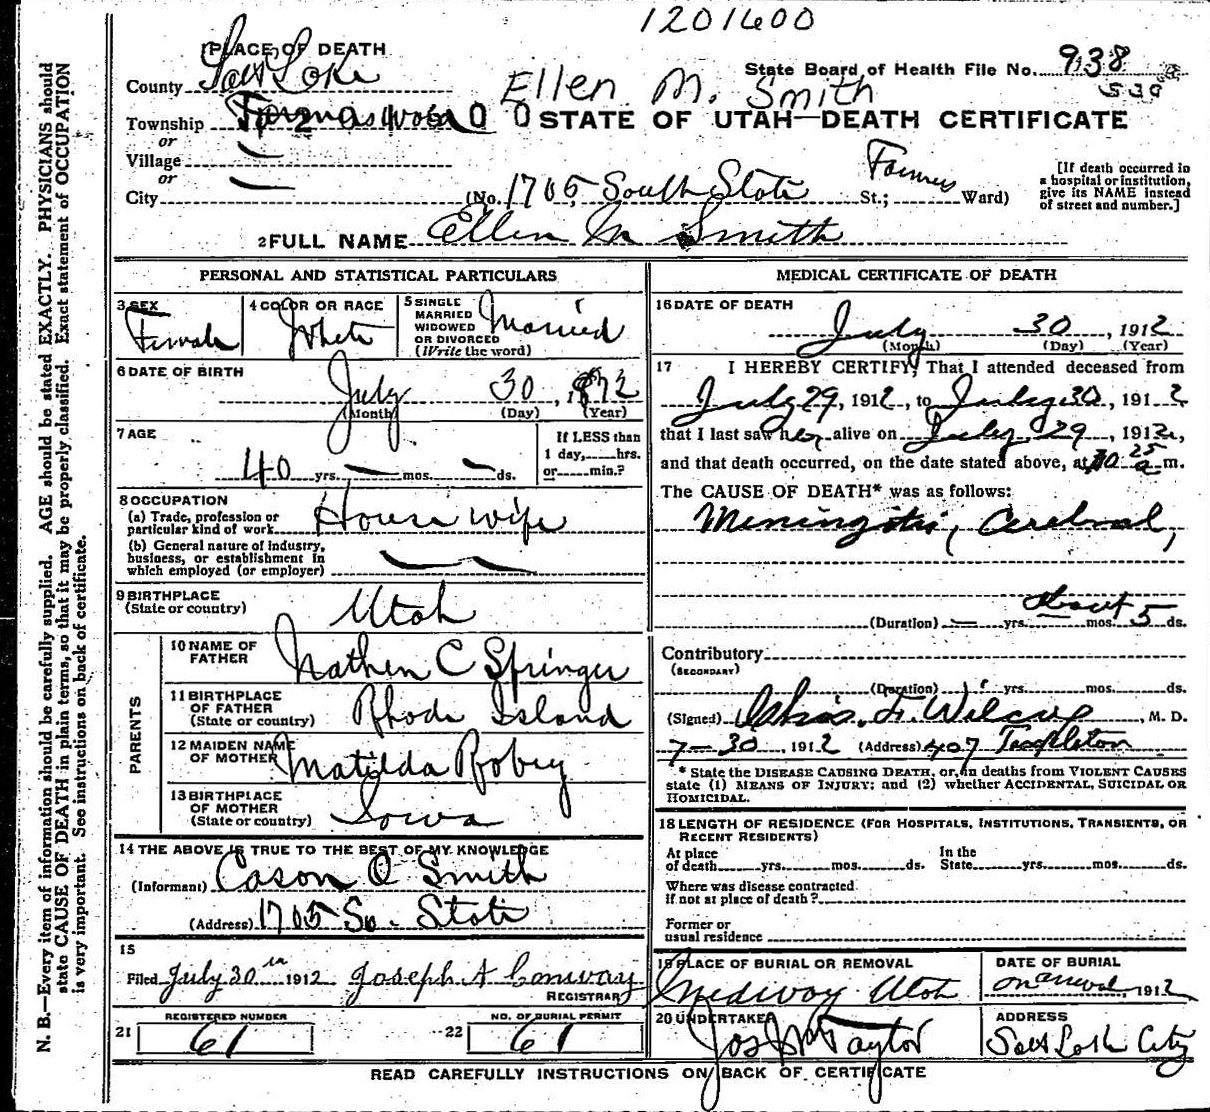 1201600
PLACE OF DEATH
State Board of Health File No. 938
County Salt Lake
Ellen M. Smith
530
Township Farmers Ward 0 0
STATE OF UTAH—DEATH CERTIFICATE
or
Village —
or
City — (No. 1705 South State St.; Farmers Ward)
[If death occurred in a hospital or institution, give its NAME instead of street and number.]
2 FULL NAME Ellen M Smith
PERSONAL AND STATISTICAL PARTICULARS
3 SEX Female
4 COLOR OR RACE White
5 SINGLE MARRIED WIDOWED OR DIVORCED (Write the word) Married
6 DATE OF BIRTH
July 30, 1872
(Month) (Day) (Year)
7 AGE
40 yrs. — mos. — ds.
If LESS than 1 day, hrs. or min.?
8 OCCUPATION
(a) Trade, profession or particular kind of work House wife
(b) General nature of industry, business, or establishment in which employed (or employer) — —
9 BIRTHPLACE (State or country) Utah
PARENTS
10 NAME OF FATHER Nathen C Springer
11 BIRTHPLACE OF FATHER (State or country) Rhode Island
12 MAIDEN NAME OF MOTHER Matilda Robey
13 BIRTHPLACE OF MOTHER (State or country) Iowa
14 THE ABOVE IS TRUE TO THE BEST OF MY KNOWLEDGE
(Informant) Cason O Smith
(Address) 1705 So. State
15
Filed July 30th 1912 Joseph A Conway
REGISTRAR
21 REGISTERED NUMBER 61
22 NO. OF BURIAL PERMIT 61
MEDICAL CERTIFICATE OF DEATH
16 DATE OF DEATH
July 30, 1912
(Month) (Day) (Year)
17 I HEREBY CERTIFY, That I attended deceased from
July 29, 1912, to July 30, 1912
that I last saw her alive on July 29, 1912,
and that death occurred, on the date stated above, at 10 25 a m.
The CAUSE OF DEATH* was as follows:
Meningitis, Cerebral,
(Duration) — yrs. — mos. about 5 ds.
Contributory
(SECONDARY)
(Duration) yrs. mos. ds.
(Signed) Chas. F. Wilcox, M. D.
7-30, 1912 (Address) 407 Templeton
* State the DISEASE CAUSING DEATH, or, in deaths from VIOLENT CAUSES
state (1) MEANS OF INJURY; and (2) whether ACCIDENTAL, SUICIDAL OR
HOMICIDAL.
18 LENGTH OF RESIDENCE (FOR HOSPITALS, INSTITUTIONS, TRANSIENTS, OR
RECENT RESIDENTS)
At place of death yrs. mos. ds. In the State yrs. mos. ds.
Where was disease contracted
If not at place of death?
Former or
usual residence
19 PLACE OF BURIAL OR REMOVAL
Midway Utah
DATE OF BURIAL
1912
20 UNDERTAKER
Jos Wm Taylor
ADDRESS
Salt Lake City
READ CAREFULLY INSTRUCTIONS ON BACK OF CERTIFICATE
N. B.—Every item of information should be carefully supplied. AGE should be stated EXACTLY. PHYSICIANS should
state CAUSE OF DEATH in plain terms, so that it may be properly classified. Exact statement of OCCUPATION
is very important. See instructions on back of certificate.